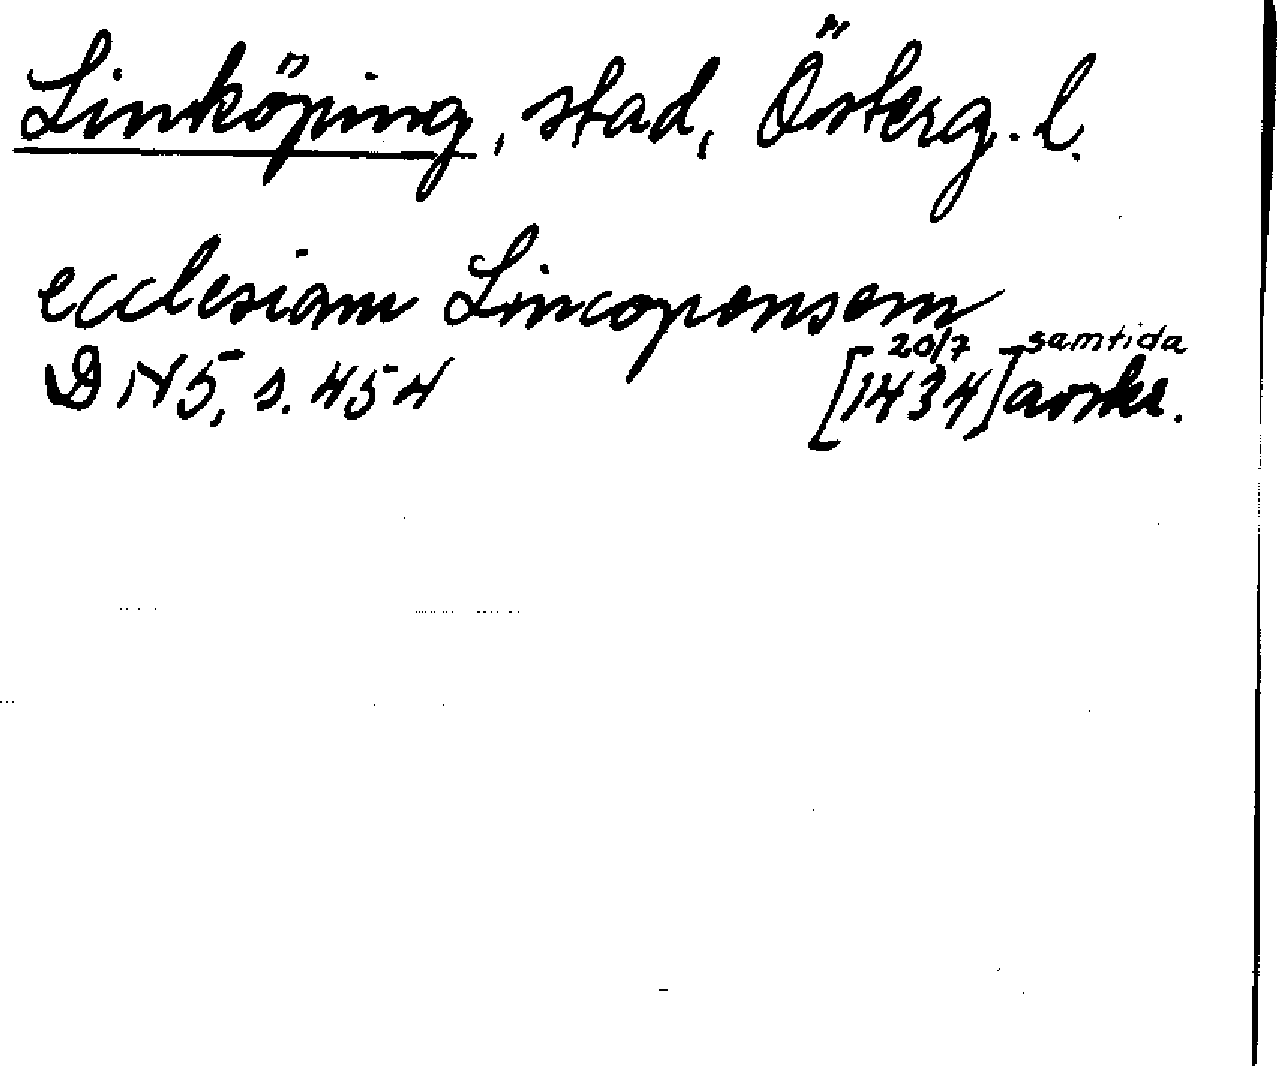 Linköping, stad, Österg. l.
ecclesiam Lincopensem
DN 5, s. 454 [20/7 1434] samtida avskr.